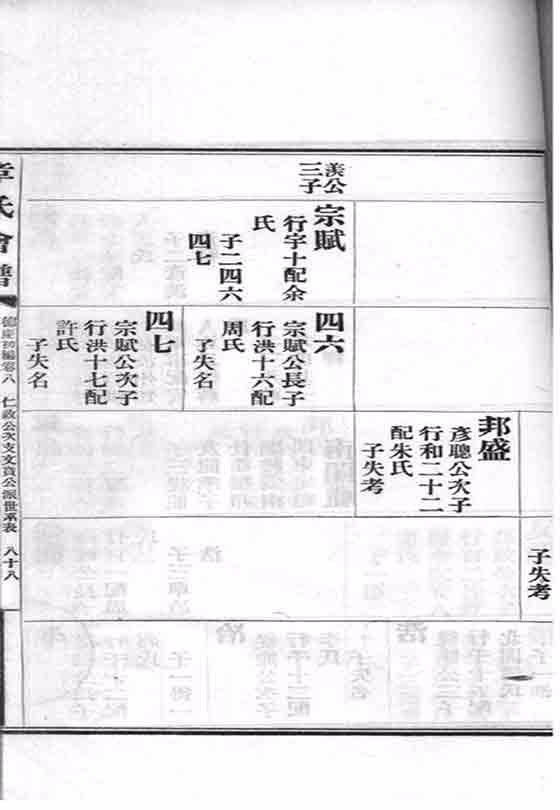 羨公
三子
宗賦
行宇十配余
氏
子二四六
四七
四六
宗賦公長子
行洪十六配
周氏
子失名
四七
宗賦公次子
行洪十七配
許氏
子失名
邦盛
彥聰公次子
行和二十二
配朱氏
子失考
子失考
章氏會譜
德慶初編卷八
仁政公次支文貴公派世系表
八十八